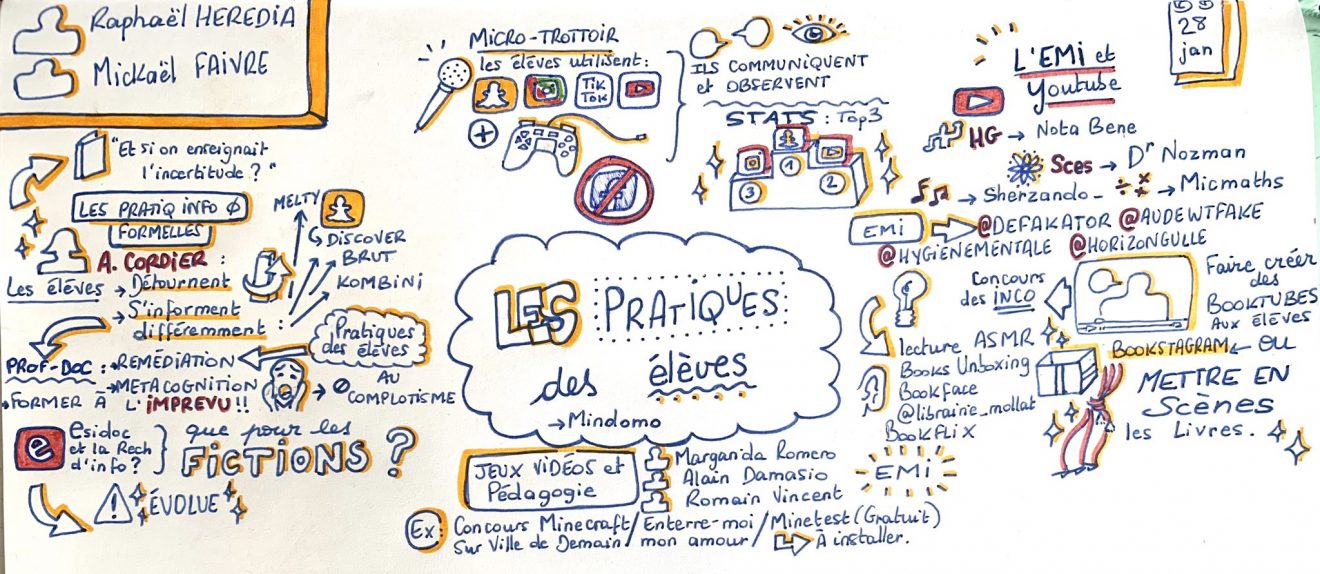 Raphaël HEREDIA
Mickaël FAIVRE
"Et si on enseignait
l'incertitude ?"
LES PRATIQ INFO Ø
FORMELLES
A. CORDIER :
Les élèves → Détournent
→ S'informent
différemment :
MELTY
DISCOVER
BRUT
KOMBINI
Pratiques
des élèves
PROF-DOC : → REMÉDIATION
→ METACOGNITION
→ FORMER À L'IMPREVU !!
→ Ø AU
COMPLOTISME
e
esidoc
et la Rech
d'info ?
que pour les
FICTIONS ?
ÉVOLUE
MICRO-TROTTOIR
les élèves utilisent :
TIK
TOK
+
f
ILS COMMUNIQUENT
et OBSERVENT
STATS : Top3
3
1
2
LES PRATIQUES
des élèves
→ Mindomo
JEUX VIDÉOS et
Pédagogie
Margarida Romero
Alain Damasio
Romain Vincent
Ex : Concours Minecraft / Enterre-moi / Minetest (Gratuit)
Sur Ville de Demain / mon amour / À installer.
28
jan
L'EMI et
Youtube
HG → Nota Bene
Sces → Dr Nozman
→ Sherzando - ÷ × → Micmaths
EMI @DEFAKATOR @AUDEWTFAKE
@HYGIÈNEMENTALE @HORIZONGULLE
Concours
des INCO
Faire créer
des
BOOKTUBES
AUX ÉLÈVES
lecture ASMR
Books Unboxing
Bookface
@librairie_mollat
BOOKFLIX
EMI
BOOKSTAGRAM ← OU
METTRE EN
Scènes
les Livres.